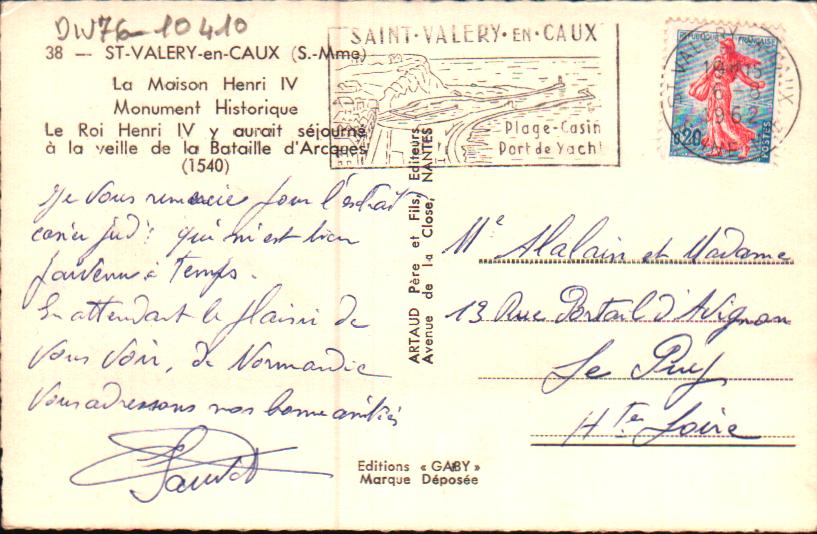 DW76-10410
38 — ST-VALERY-en-CAUX (S.-Mme)
La Maison Henri IV
Monument Historique
Le Roi Henri IV y aurait séjourné
à la veille de la Bataille d'Arques
(1540)
SAINT·VALERY·EN·CAUX
Plage-Casin
Port de Yacht
REPUBLIQUE FRANÇAISE
0,20
POSTES
ST VALERY CAUX
6 - 9
1962
Je vous remercie pour l'extrait
casier jud: qui m'est bien
parvenu à temps.
En attendant le plaisir de
vous voir, de Normandie
vous adressons nos bonnes amitiés
ARTAUD Père et Fils, Editeurs
Avenue de la Close, NANTES
Me Alalain et Madame
13 Rue Portail d'Avignon
Le Puy
Hte Loire
Editions « GABY »
Marque Déposée